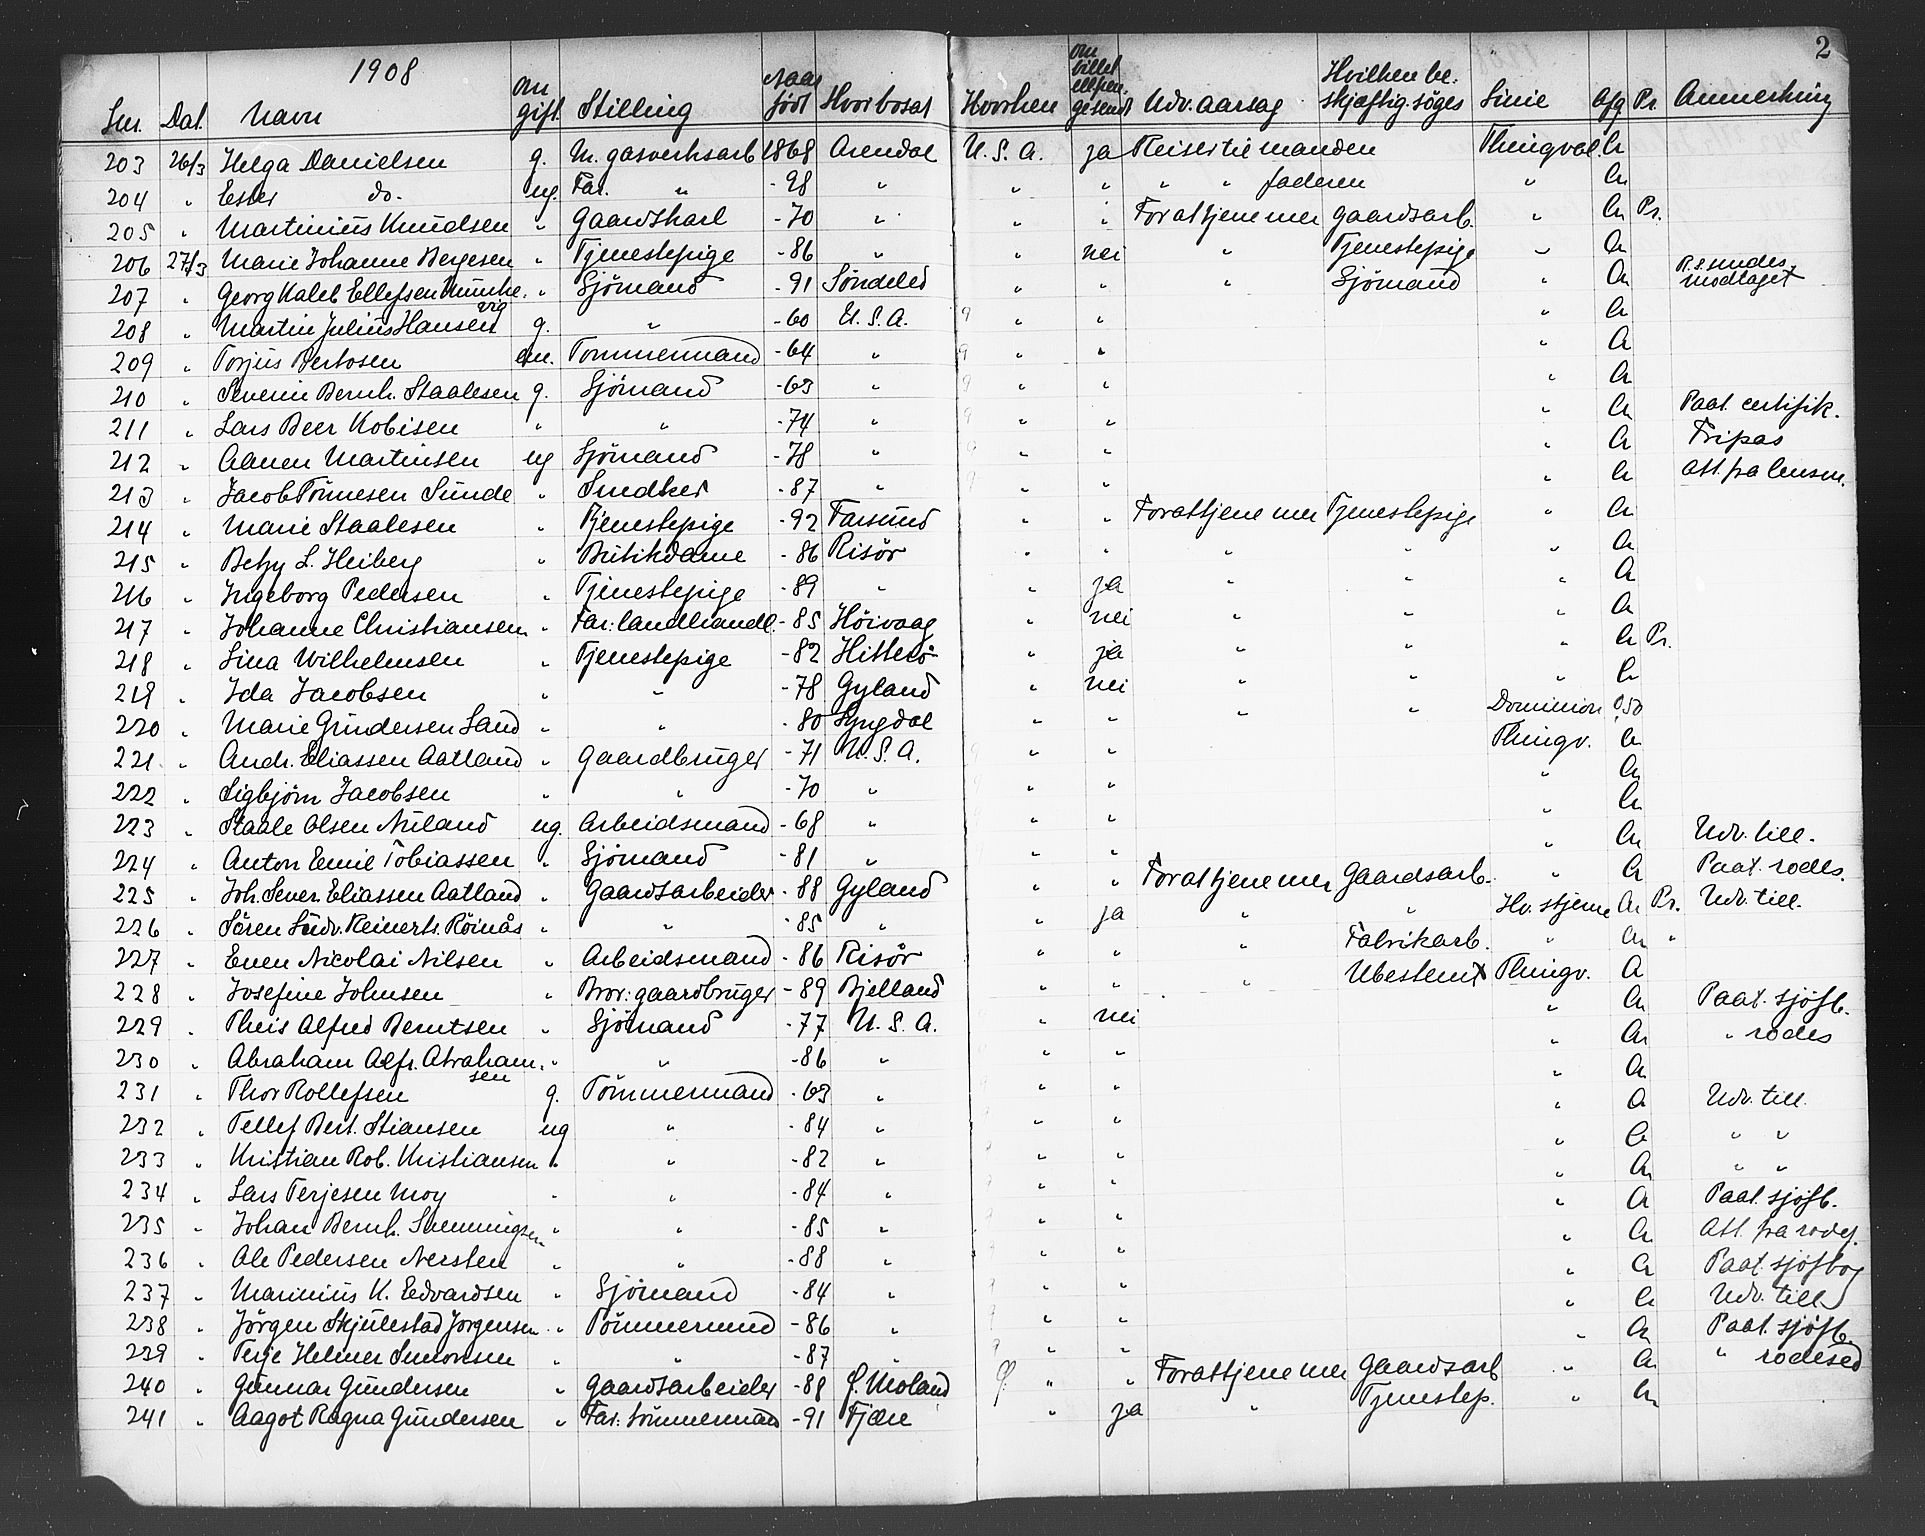 1908 2
Lnr. Dat. Navn Om gift. Stilling Naar födt Hvor bosat Hvorhen Om billet ell. pen. er sendt Udv. aarsag Hvilken be- skjæftig. söges Linie Afg Pr. Anmerkning
203 26/3 Helga Danielsen g. M. gasverksarb 1868 Arendal U. S. A. ja Reiser til manden Thingval. A
204 " Ester do. ug. Far. " - 98 " " " " " faderen " A
205 " Martinius Knudsen " Gaardskarl - 70 " " " For at tjene mer gaardsarb. " A Pr.
206 27/3 Marie Johanne Bergesen " Tjenestepige - 86 " " nei " Tjenestepige " A
207 " Georg Kaleb Ellefsen Munke- vig " Sjömand - 91 Söndeled " " " Sjömand " A R. S. sundes. modtaget
208 " Martin Julius Hansen g. " - 60 U. S. A. " " " A
209 " Torjus Bertosen em. Tömmermand - 64 " " " " A
210 " Severin Bernh. Staalesen g. Sjömand - 63 " " " " A
211 " Lars Beer Kobisen " " - 74 " " " " A Paat. certifik.
212 " Aanen Martinsen ug Sjömand - 78 " " " " A Fripas
213 " Jacob Tönnesen Sunde " Snedker - 87 " " " " A Att. fra lensm.
214 " Marie Staalesen " Tjenestepige - 92 Farsund " " For at tjene mer Tjenestepige " A
215 " Betzy L. Heiberg " Butikdame - 86 Risör " " " " " A
216 " Ingeborg Pedersen " Tjenestepige - 89 " " ja " " " A
217 " Johanne Christiansen " Far: landhandl. - 85 Höivaag " nei " " " A
218 " Lina Wilhelmsen " Tjenestepige - 82 Hitterö " ja " " " A Pr.
219 " Ida Jacobsen " " - 78 Gyland " nei " " " A
220 " Marie Gundersen Sand " " - 80 Lyngdal " " " " Dominion 0,50
221 " Andr. Eliassen Aatland " Gaardbruger - 71 U. S. A. " " Thingv. A
222 " Sigbjörn Jacobsen " " - 70 " " " " A
223 " Staale Olsen Nuland ug. Arbeidsmand - 68 " " " " A
224 " Anton Emil Tobiassen " Sjömand - 81 " " " " A Udv. till.
225 " Joh. Sever. Eliassen Aatland " Gaardsarbeider - 88 Gyland " " For at tjene mer Gaardsarb. " A Paat. rodes.
226 " Sören Ludv. Reinerts. Röinås " " - 85 " " ja " " Hv. stjerne A Pr. Udv. till.
227 " Even Nicolai Nilsen " Arbeidsmand - 86 Risör " " " Fabrikarb. " A "
228 " Josefine Johnsen " Bror: gaardbruger - 89 Bjelland " " " Ubestemt Thingv. A
229 " Theis Alfred Berntsen " Sjömand - 77 U. S. A. " nei " A Paat. sjöfb.
230 " Abraham Alfr. Abraham- sen " " - 86 " " " " A " rodes
231 " Thor Rollefsen g. Tömmermand - 63 " " " " A
232 " Tellef Bert. Stiansen ug " - 84 " " " " A Udv. till.
233 " Kristian Rob. Kristiansen " " - 82 " " " " A " "
234 " Lars Terjesen Moy " " - 84 " " " " A " "
235 " Johan Bernh. Svenningsen " " - 85 " " " " A Paat. sjöfb.
236 " Ole Pedersen Nersten " " - 88 " " " " A Att. fra rodef.
237 " Marinius K. Edvardsen " Sjömand - 84 " " " " A Paat. sjöfbog
238 " Jörgen Skjulestad Jörgensen " Tömmermand - 86 " " " " A Udv. till
239 " Terje Helmer Simonsen " " - 87 " " " " A Paat. sjöfb.
240 " Gunnar Gundersen " Gaardsarbeider - 88 Ö. Moland " " For at tjene mer Gaardsarb " A " rodesed
241 " Aagot Ragna Gundersen " Far: tömmermand - 91 Fjære " ja " Tjenestep. " A